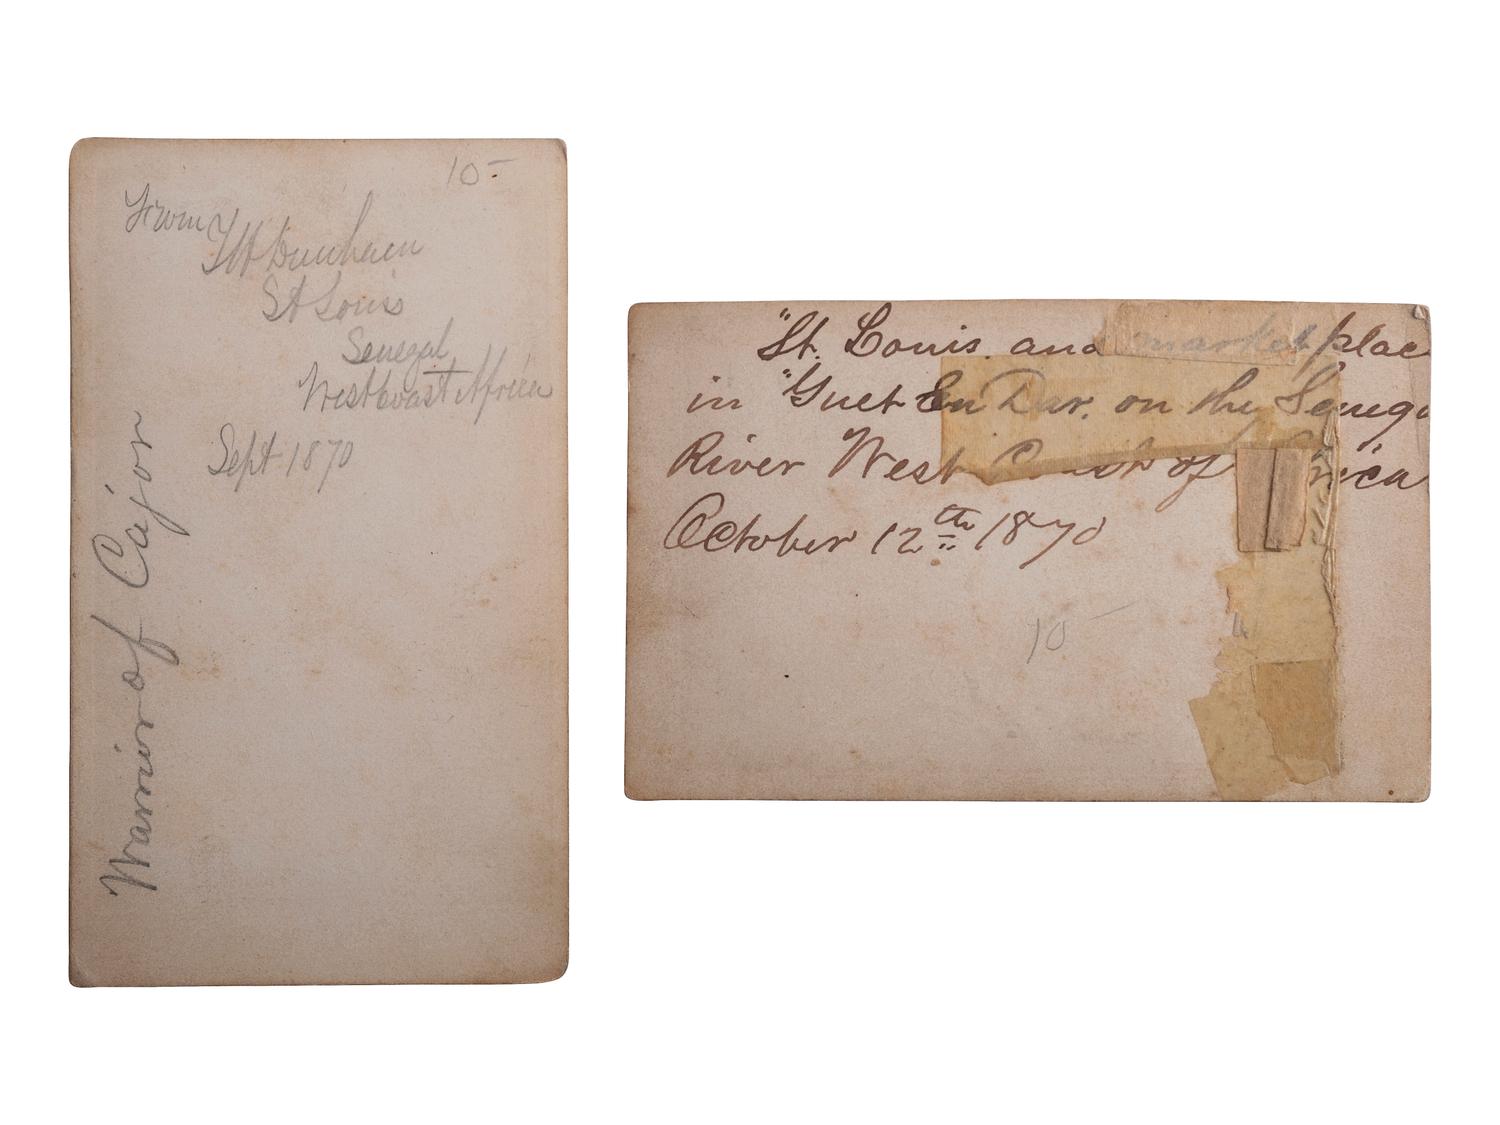 10-
From
St Louis
Senegal
West Coast Africa
Sept 1870
Warrior of Cajor
"St. Louis and market plac
in "Guet En Dar. on the Senega
River West Coast of Africa
October 12th 1870
10-